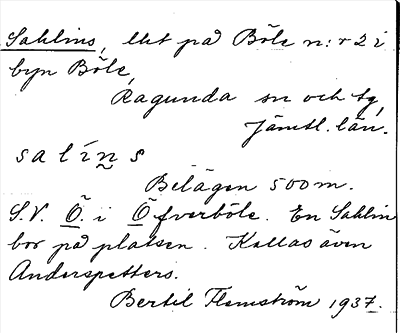 Sahlins, lht på Böle n:r 2 i
byn Böle,
Ragunda sn och tg,
Jämtl. län.
s a l í n s
Belägen 500 m.
S.V. Ö. i Öfverböle. En Sahlin
bor på platsen. Kallas även
Anderspetters.
Bertil Flemström 1937.